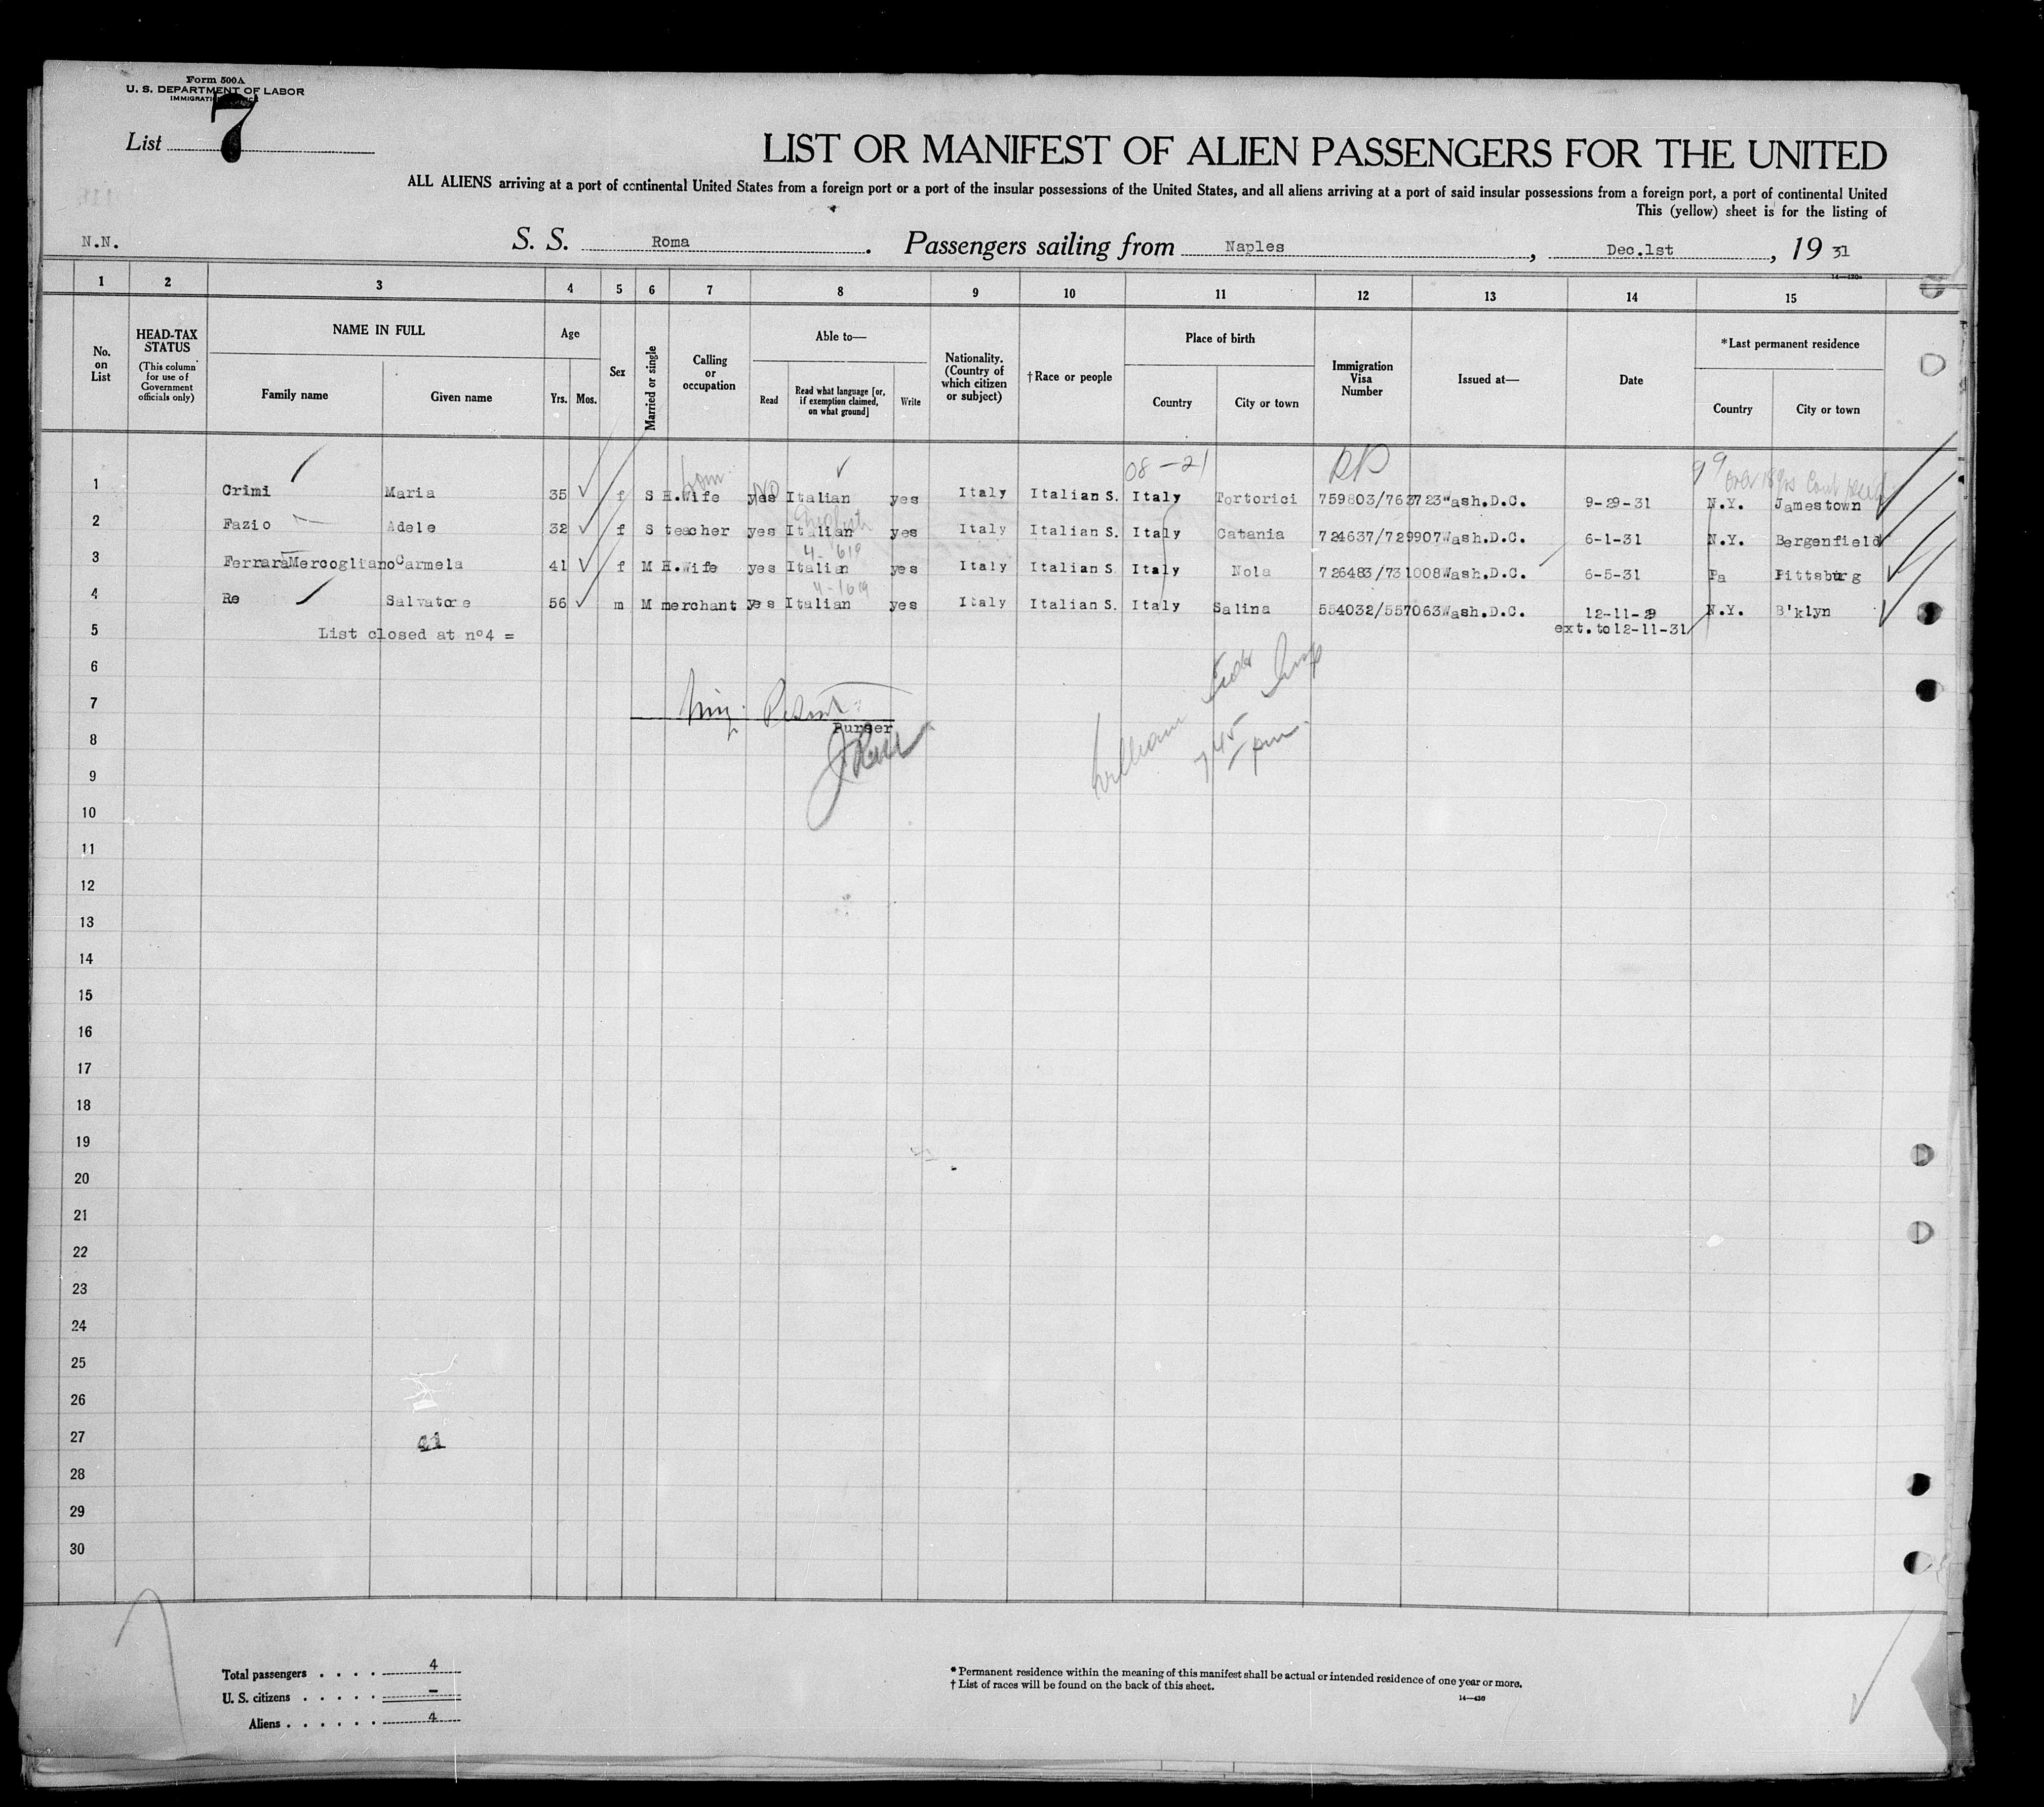 Form 500A
U. S. DEPARTMENT OF LABOR
List 7
LIST OR MANIFEST OF ALIEN PASSENGERS FOR THE UNITED
ALL ALIENS arriving at a port of continental United States from a foreign port or a port of the insular possessions of the United States, and all aliens arriving at a port of said insular possessions from a foreign port, a port of continental United
This (yellow) sheet is for the listing of
N.N. S. S. Roma. Passengers sailing from Naples, Dec.1st, 19 31
1 2 3 4 5 6 7 8 9 10 11 12 13 14 15
No. on List
HEAD-TAX STATUS
(This column for use of Government officials only)
NAME IN FULL
Family name Given name
Age
Yrs. Mos.
Sex
Married or single
Calling or occupation
Able to—
Read
Read what language [or, if exemption claimed, on what ground]
Write
Nationality. (Country of which citizen or subject)
†Race or people
Place of birth
Country City or town
Immigration Visa Number
Issued at—
Date
*Last permanent residence
Country City or town
08-21
1 Crimi Maria 35 f S H.Wife yes NO Italian yes Italy Italian S. Italy Tortorici 759803/763723 Wash.D.C. 9-29-31 N.Y. Jamestown
2 Fazio Adele 32 f S teacher yes Italian English yes Italy Italian S. Italy Catania 724637/729907 Wash.D.C. 6-1-31 N.Y. Bergenfield
4-1619
3 Ferrara Mercogliano Carmela 41 f M H.Wife yes Italian yes Italy Italian S. Italy Nola 726483/731008 Wash.D.C. 6-5-31 Pa Pittsburg
4-1619
4 Re Salvatore 56 m M merchant yes Italian yes Italy Italian S. Italy Salina 554032/557063 Wash.D.C. 12-11-29 N.Y. B'klyn
ext.to 12-11-31
5 List closed at n°4 =
6
7
Purser
8
745 pm
9
10
11
12
13
14
15
16
17
18
19
20
21
22
23
24
25
26
27
28
29
30
Total passengers . . . . 4
U. S. citizens . . . . . -
Aliens . . . . . . 4
* Permanent residence within the meaning of this manifest shall be actual or intended residence of one year or more.
† List of races will be found on the back of this sheet.
14—430